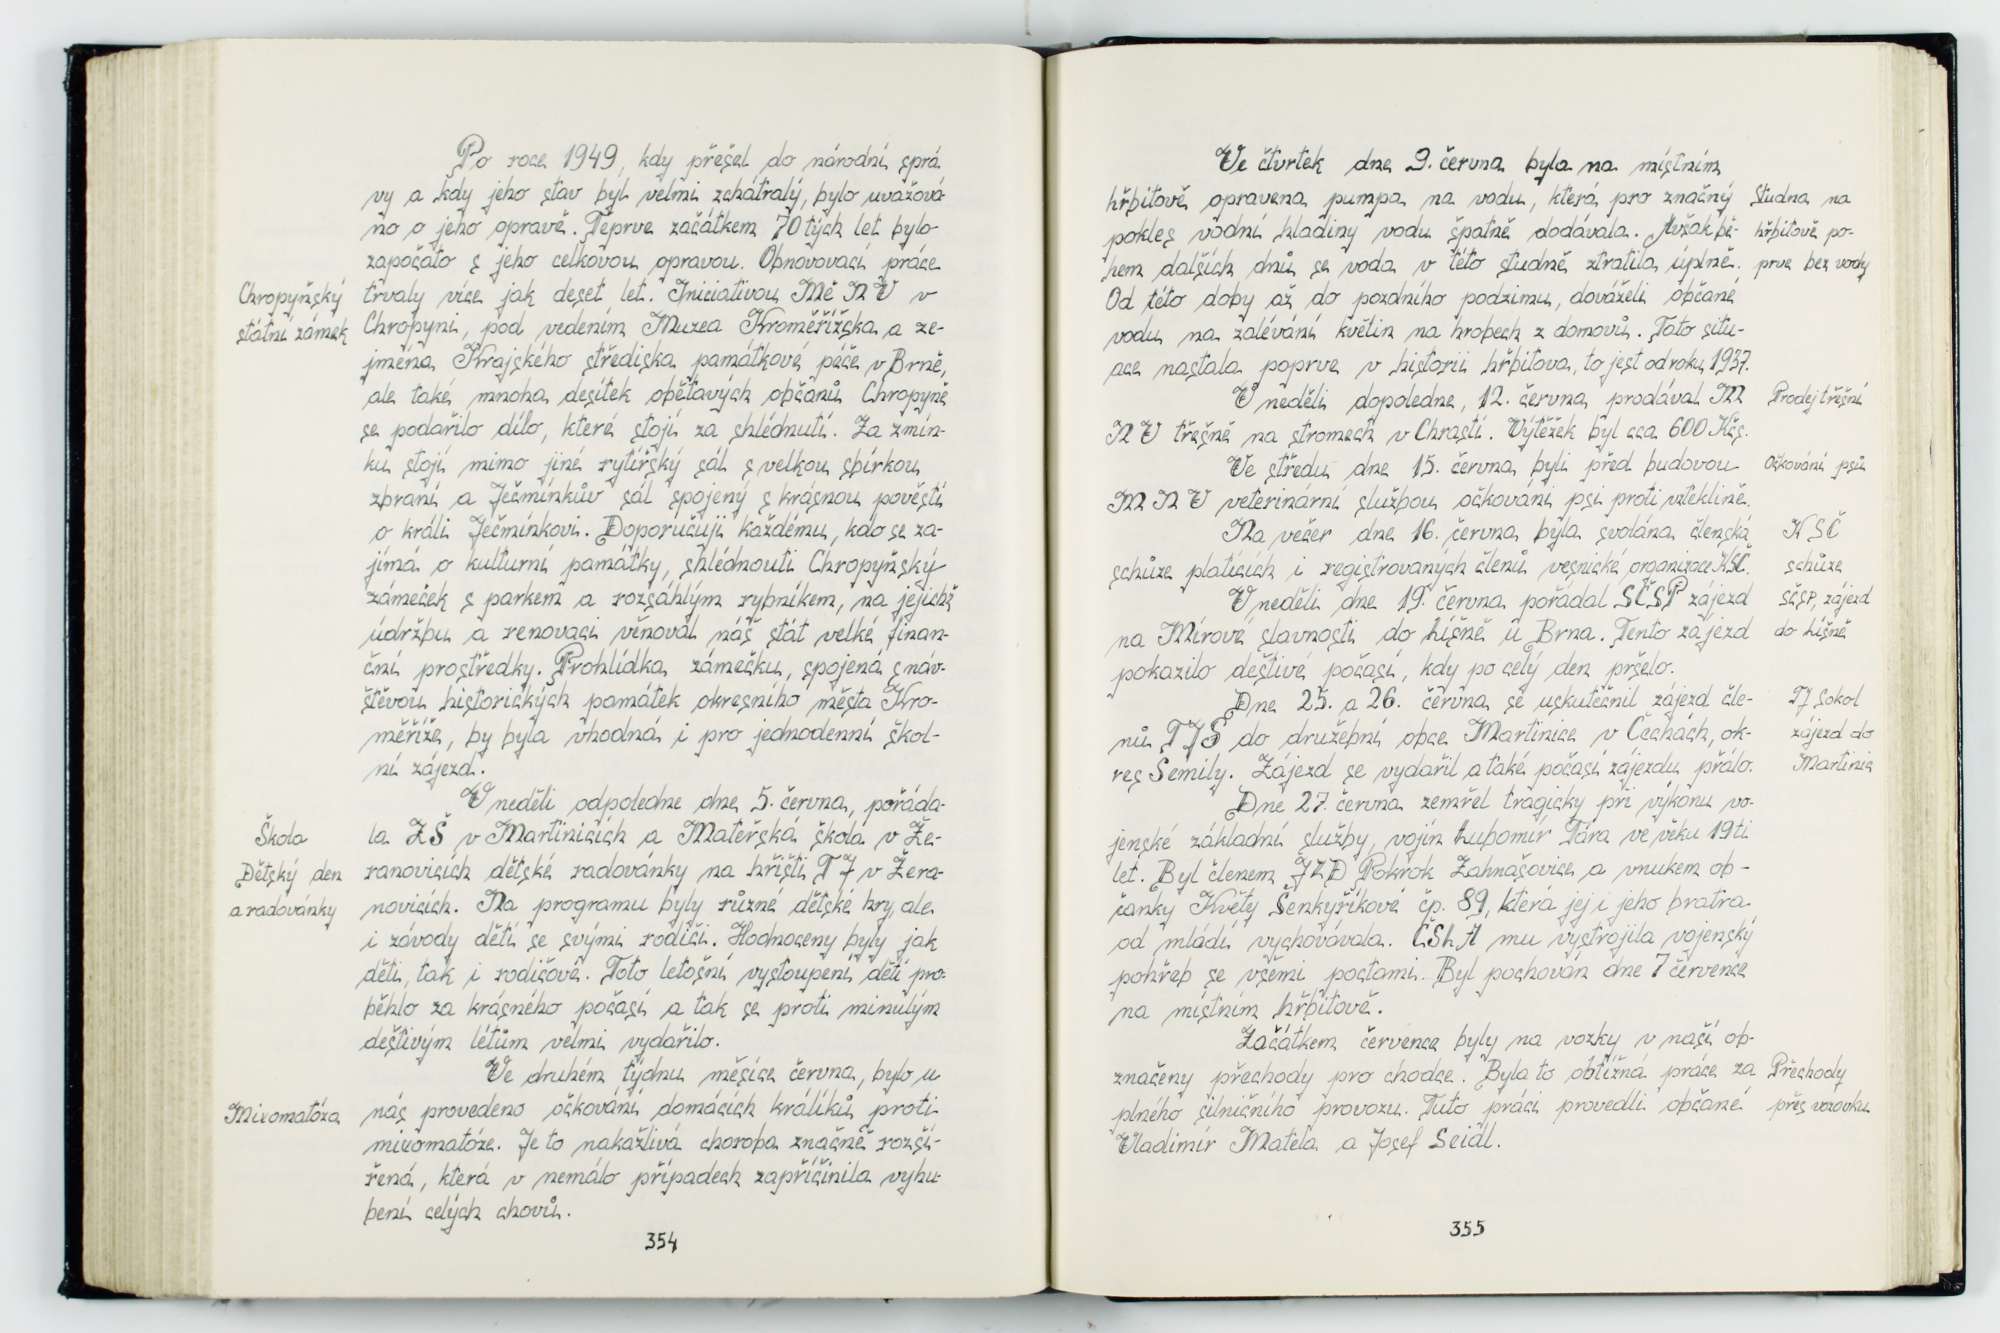 Po roce 1949, kdy přešel do národní sprá
vy a kdy jeho stav byl velmi zchátralý, bylo uvažová
no o jeho opravě. Teprve začátkem 70tých let bylo
započato s jeho celkovou opravou. Obnovovací práce
Chropyňský
státní zámek
trvaly více jak deset let. Iniciativou MěNV v
Chropyni, pod vedením Muzea Kroměřížska a ze-
jména Krajského střediska památkové péče v Brně,
ale také mnoha desítek obětavých občanů Chropyně
se podařilo dílo, které stojí za shlédnutí. Za zmín-
ku stojí mimo jiné rytířský sál s velkou sbírkou
zbraní a Ječmínkův sál spojený s krásnou pověstí
o králi Ječmínkovi. Doporučuji každému, kdo se za-
jímá o kulturní památky, shlédnouti Chropyňský
zámeček s parkem a rozsáhlým rybníkem, na jejichž
údržbu a renovaci věnoval náš stát velké finan-
ční prostředky. Prohlídka zámečku, spojená s náv-
štěvou historických památek okresního města Kro-
měříže, by byla vhodná i pro jednodenní škol-
ní zájezd.
V neděli odpoledne dne 5. června, pořáda-
Škola
Dětský den
a radovánky
la ZŠ v Martinicích a Mateřská škola v Že-
ranovicích dětské radovánky na hřišti TJ v Žera-
novicích. Na programu byly různé dětské hry, ale
i závody dětí se svými rodiči. Hodnoceny byly jak
děti, tak i rodičové. Toto letošní vystoupení dětí pro-
běhlo za krásného počasí a tak se proti minulým
deštivým létům velmi vydařilo.
Ve druhém týdnu měsíce června, bylo u
Mixomatóza
nás provedeno očkování domácích králíků proti
mixomatóze. Je to nakažlivá choroba značně rozší-
řená, která v nemálo případech zapříčinila vyhu-
bení celých chovů.
354
Ve čtvrtek dne 9. června byla na místním
hřbitově opravena pumpa na vodu, která pro značný
pokles vodní hladiny vodu špatně dodávala. Avšak bě-
hem dalších dnů se voda v této studně ztratila úplně.
Studna na
hřbitově po-
prve bez vody
Od této doby až do pozdního podzimu, dováželi občané
vodu na zalévání květin na hrobech z domovů. Tato situ-
ace nastala poprve v historii hřbitova, to jest od roku 1937.
V neděli dopoledne, 12. června prodával M
Prodej třešní
NV třešně na stromech v Chrasti. Výtěžek byl cca 600 Kčs.
Ve středu dne 15. června byli před budovou
Očkování psů
MNV veterinární službou očkováni psi proti vzteklině.
Na večer dne 16. června byla svolána členská
KSČ
schůze
schůze platících i registrovaných členů vesnické organizace KSČ.
V neděli dne 19. června pořádal SČSP zájezd
SČSP, zájezd
do Líšně
na Mírové slavnosti do Líšně u Brna. Tento zájezd
pokazilo deštivé počasí, kdy po celý den pršelo.
Dne 25. a 26. června se uskutečnil zájezd čle-
TJ Sokol
zájezd do
Martinic
nů TJS do družební obce Martinice v Čechách, ok-
res Semily. Zájezd se vydařil a také počasí zájezdu přálo.
Dne 27. června zemřel tragicky při výkonu vo-
jenské základní služby, vojín Lubomír Tára ve věku 19ti
let. Byl členem JZD Pokrok Zahnašovice a vnukem ob-
čanky Květy Šenkyříkové čp. 89, která jej i jeho bratra
od mládí vychovávala. ČSLA mu vystrojila vojenský
pohřeb se všemi poctami. Byl pochován dne 7 července
na místním hřbitově.
Začátkem července byly na vozky v naší ob-
značeny přechody pro chodce. Byla to obtížná práce za
Přechody
přes vozovku
plného silničního provozu. Tuto práci provedli občané
Vladimír Matela a Josef Seidl.
355